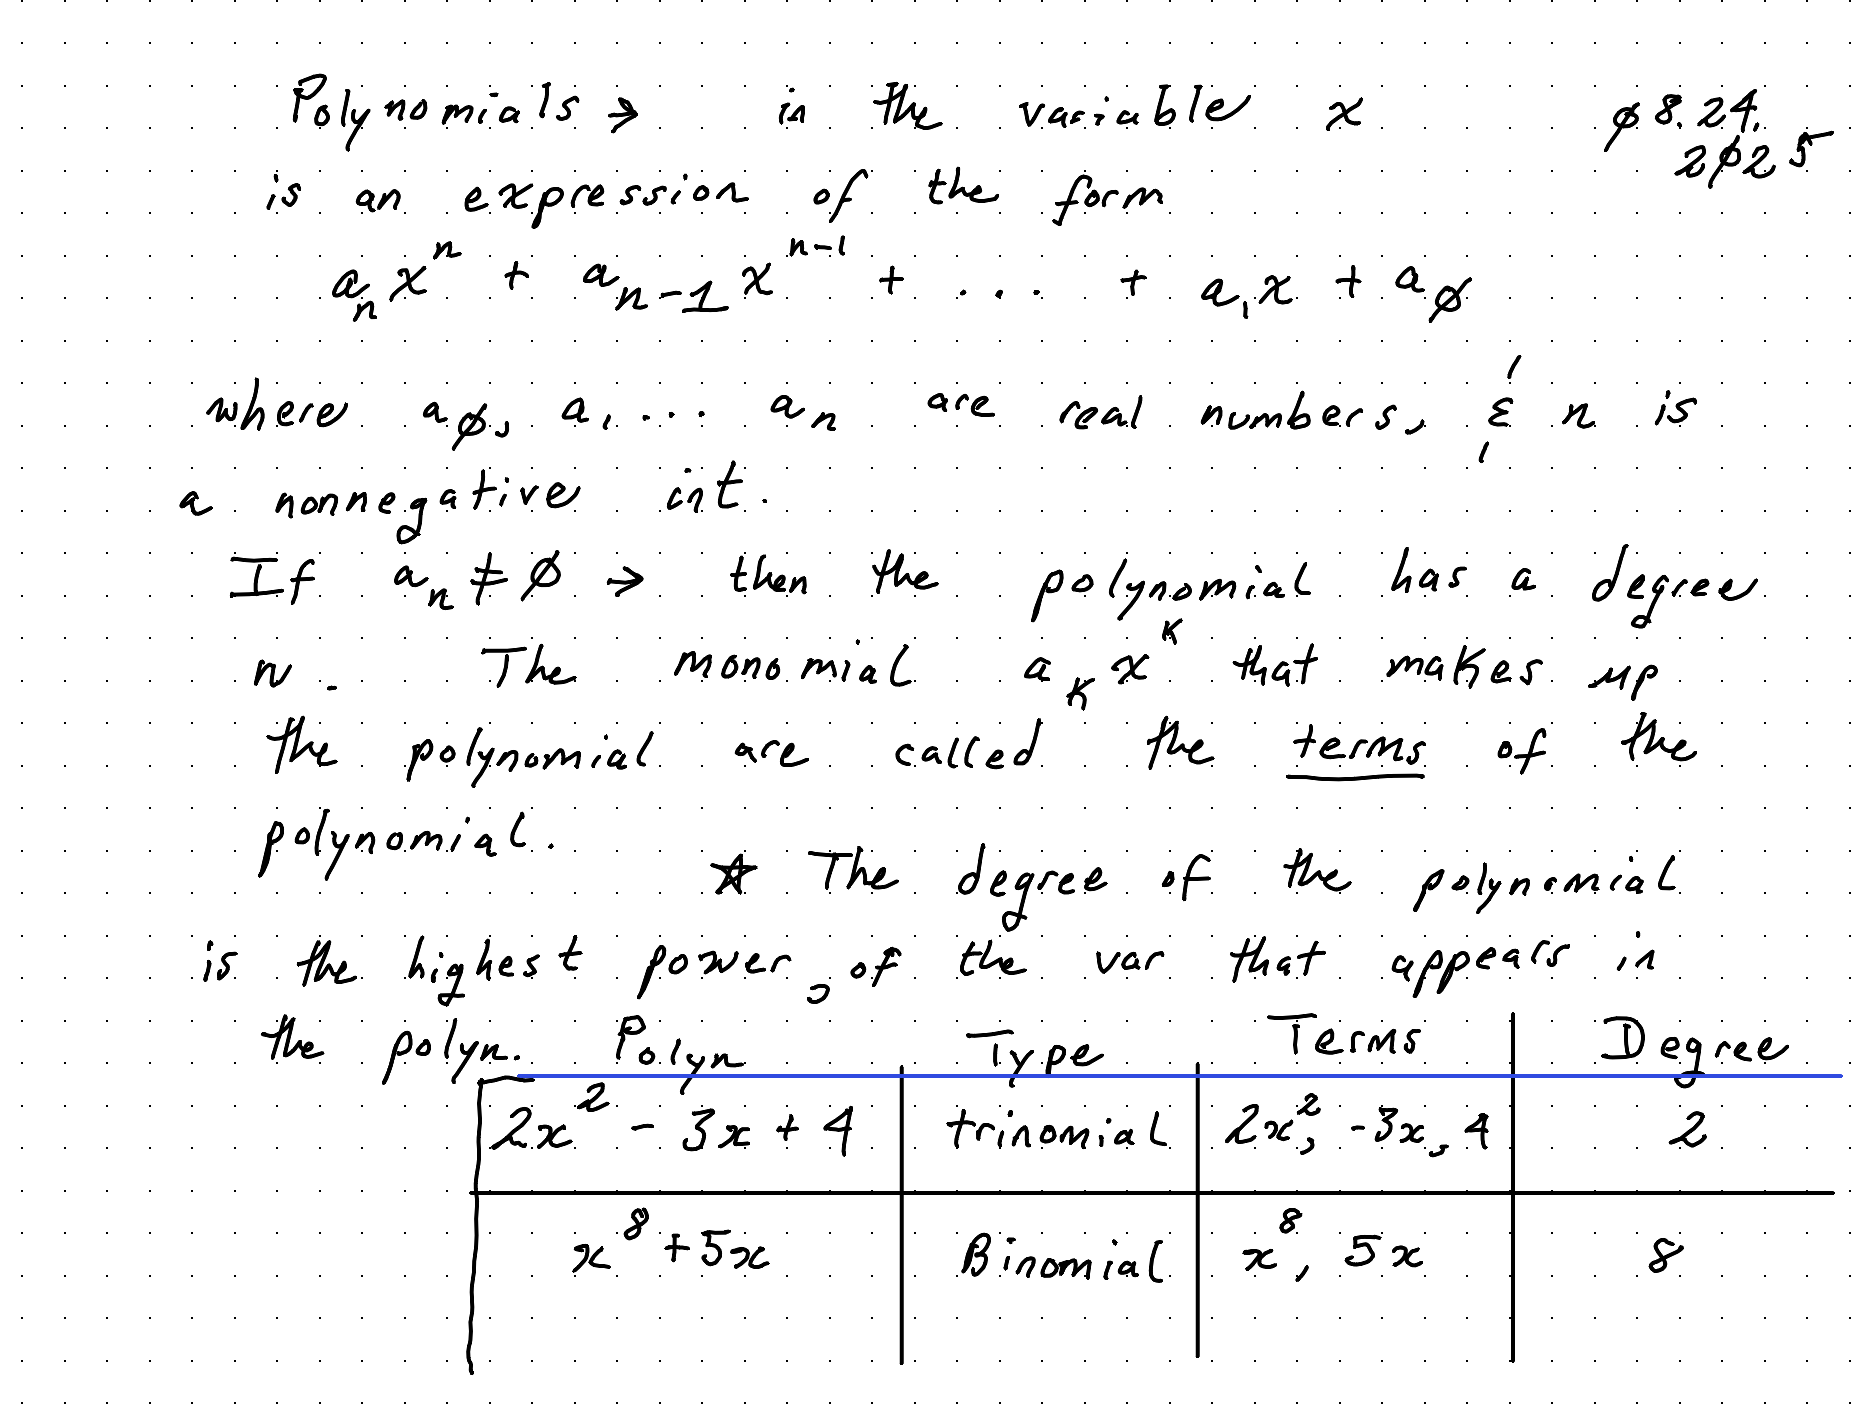 Polynomials → in the variable x
ø8.24.
2ø25
is an expression of the form
aₙxⁿ + aₙ₋₁xⁿ⁻¹ + ... + a₁x + a_ø
where a_ø, a₁ ... aₙ are real numbers, & n is
a nonnegative int.
If aₙ ≠ ø → then the polynomial has a degree
n. The monomial aₖxᵏ that makes up
the polynomial are called the terms of the
polynomial.
☆ The degree of the polynomial
is the highest power, of the var that appears in
the polyn.
Polyn Type Terms Degree
2x² - 3x + 4 trinomial 2x², -3x, 4 2
x⁸ + 5x Binomial x⁸, 5x 8